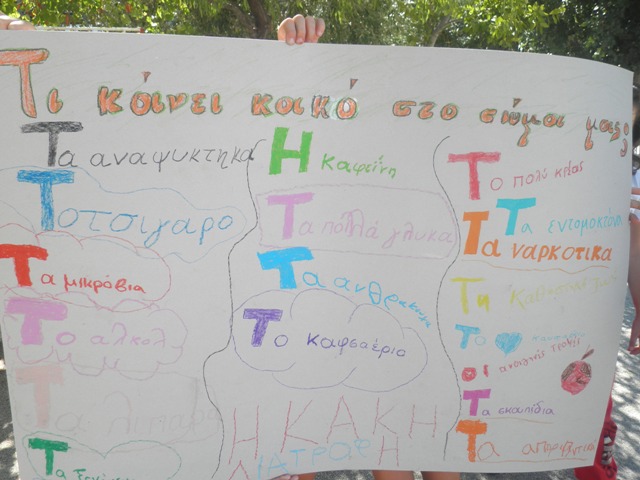 Τι κάνει κακό στο σώμα μας;
Τα αναψυκτηκα
Το τσιγαρο
Τα μικρόβια
Το αλκολ
Τα λιπαρα
Τα
Η καφεΐνη
Τα πολλά γλυκα
Τα ανθρακικα
Το καυσαέριο
Η ΚΑΚΗ
ΔΙΑΤΡΟΦΗ
Το πολύ κρέας
Τα εντομοκτόνα
Τα ναρκοτικα
Τη
Το
οι τροφές
Τα σκουπίδια
Τα